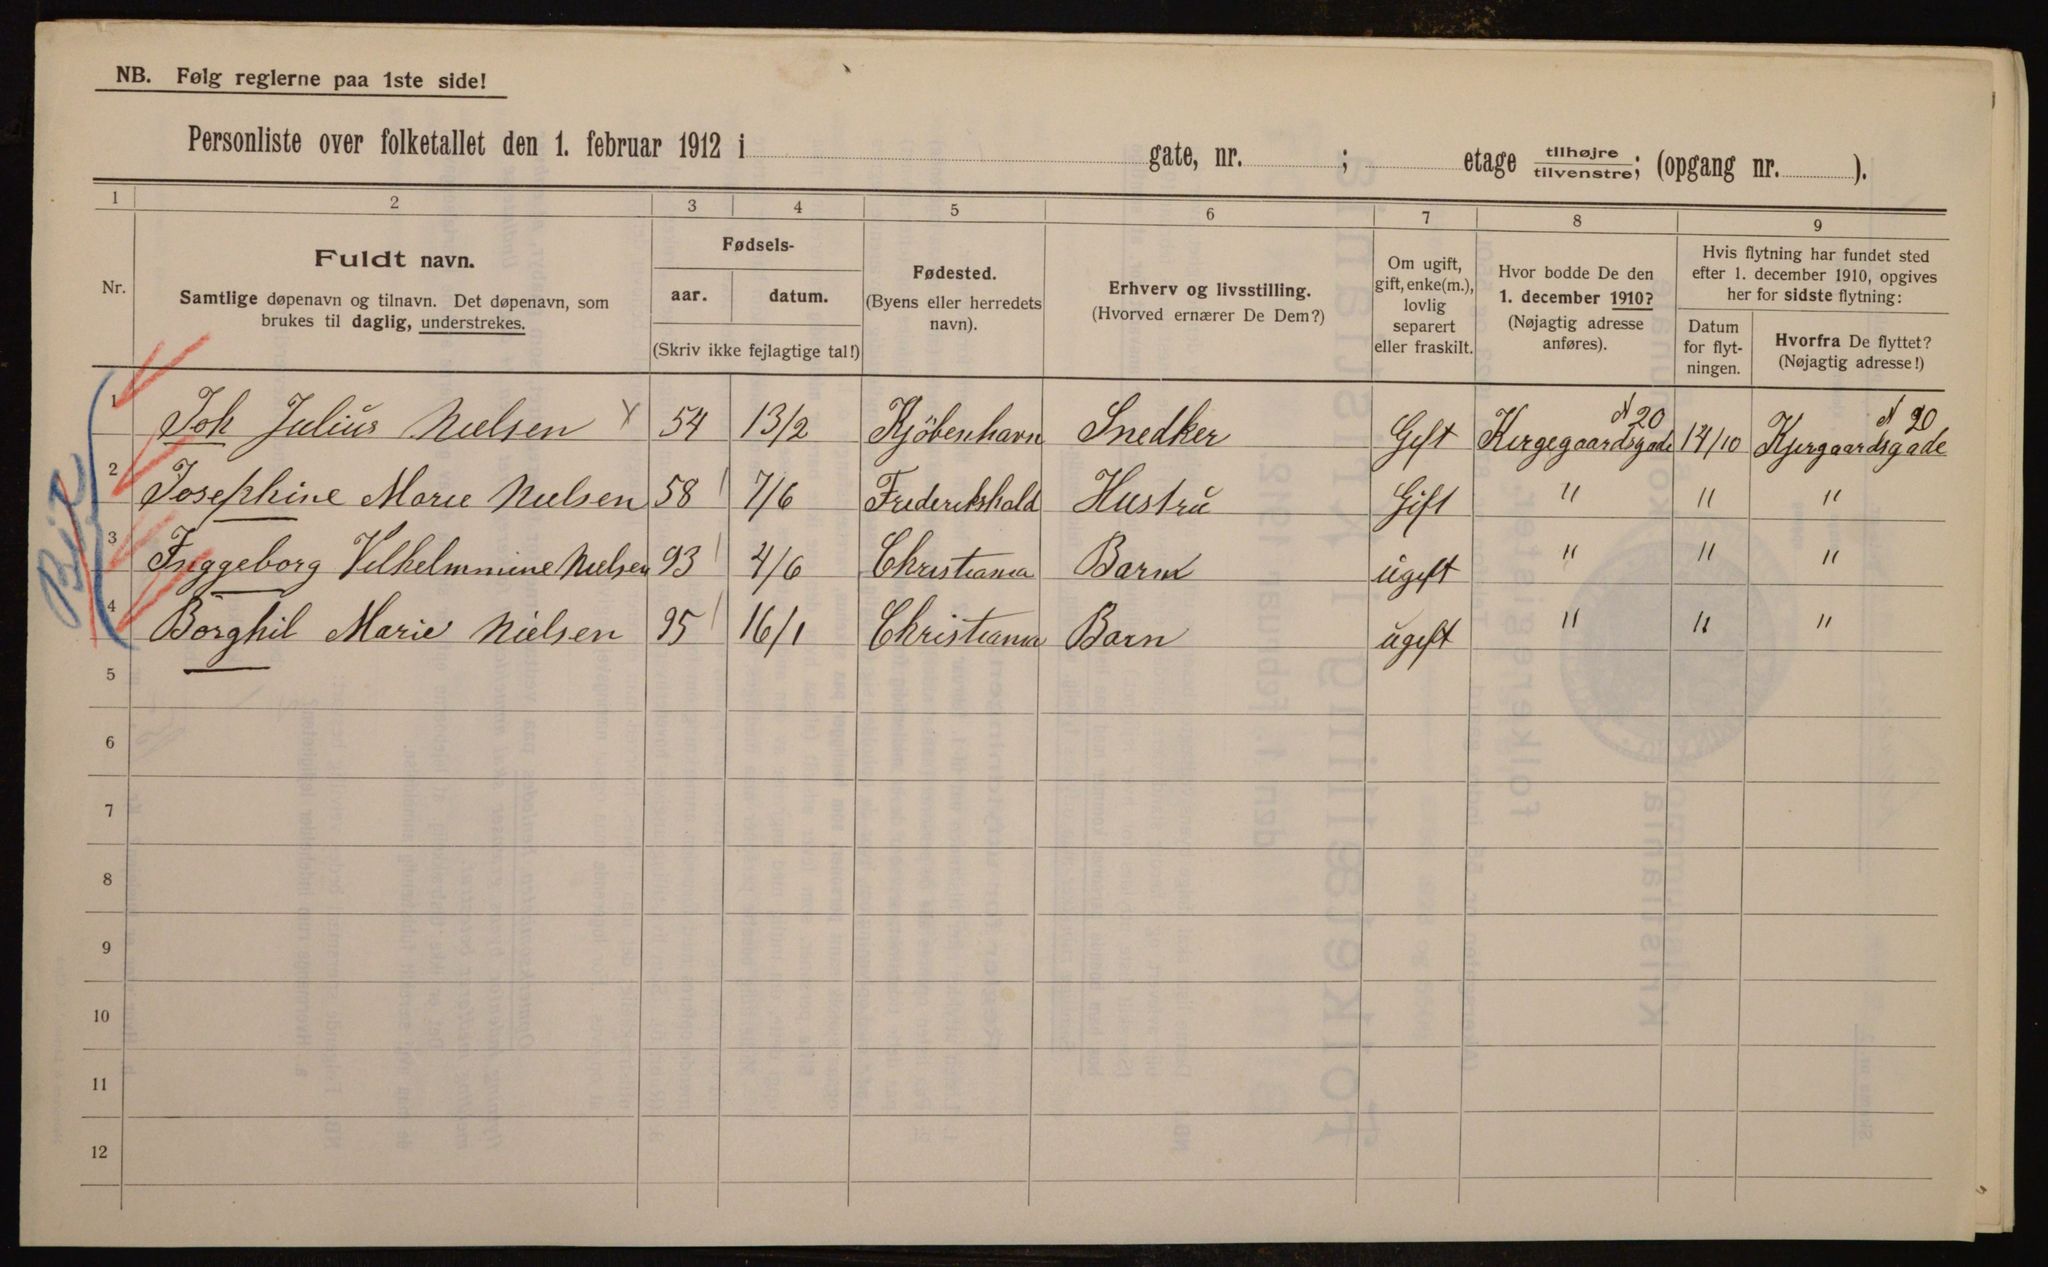 NB. Følg reglerne paa 1ste side!
Personliste over folketallet den 1. februar 1912 i gate, nr. ; etage tilhøjre tilvenstre; (opgang nr. ).
1 2 3 4 5 6 7 8 9
Nr.
Fuldt navn.
Samtlige døpenavn og tilnavn. Det døpenavn, som
brukes til daglig, understrekes.
Fødsels-
aar. datum.
(Skriv ikke fejlagtige tal!)
Fødested.
(Byens eller herredets
navn).
Erhverv og livsstilling.
(Hvorved ernærer De Dem?)
Om ugift,
gift, enke(m.),
lovlig
separert
eller fraskilt.
Hvor bodde De den
1. december 1910?
(Nøjagtig adresse
anføres).
Hvis flytning har fundet sted
efter 1. december 1910, opgives
her for sidste flytning:
Datum
for flyt-
ningen.
Hvorfra De flyttet?
(Nøjagtig adresse!)
1 Joh Julius Nielsen x 54 13/2 Kjöbenhavn Snedker Gift Kirgegaardsgade N 20 14/10 Kjergaardsgade N 20
2 Josephine Marie Nielsen 58 7/6 Frederikshald Hustru Gift " " "
3 Inggeborg Vilhelmmine Nielsen 93 4/6 Christiania Barn ugift " " "
4 Borghil Marie Nielsen 95 16/1 Christiania Barn ugift " " "
5
6
7
8
9
10
11
12